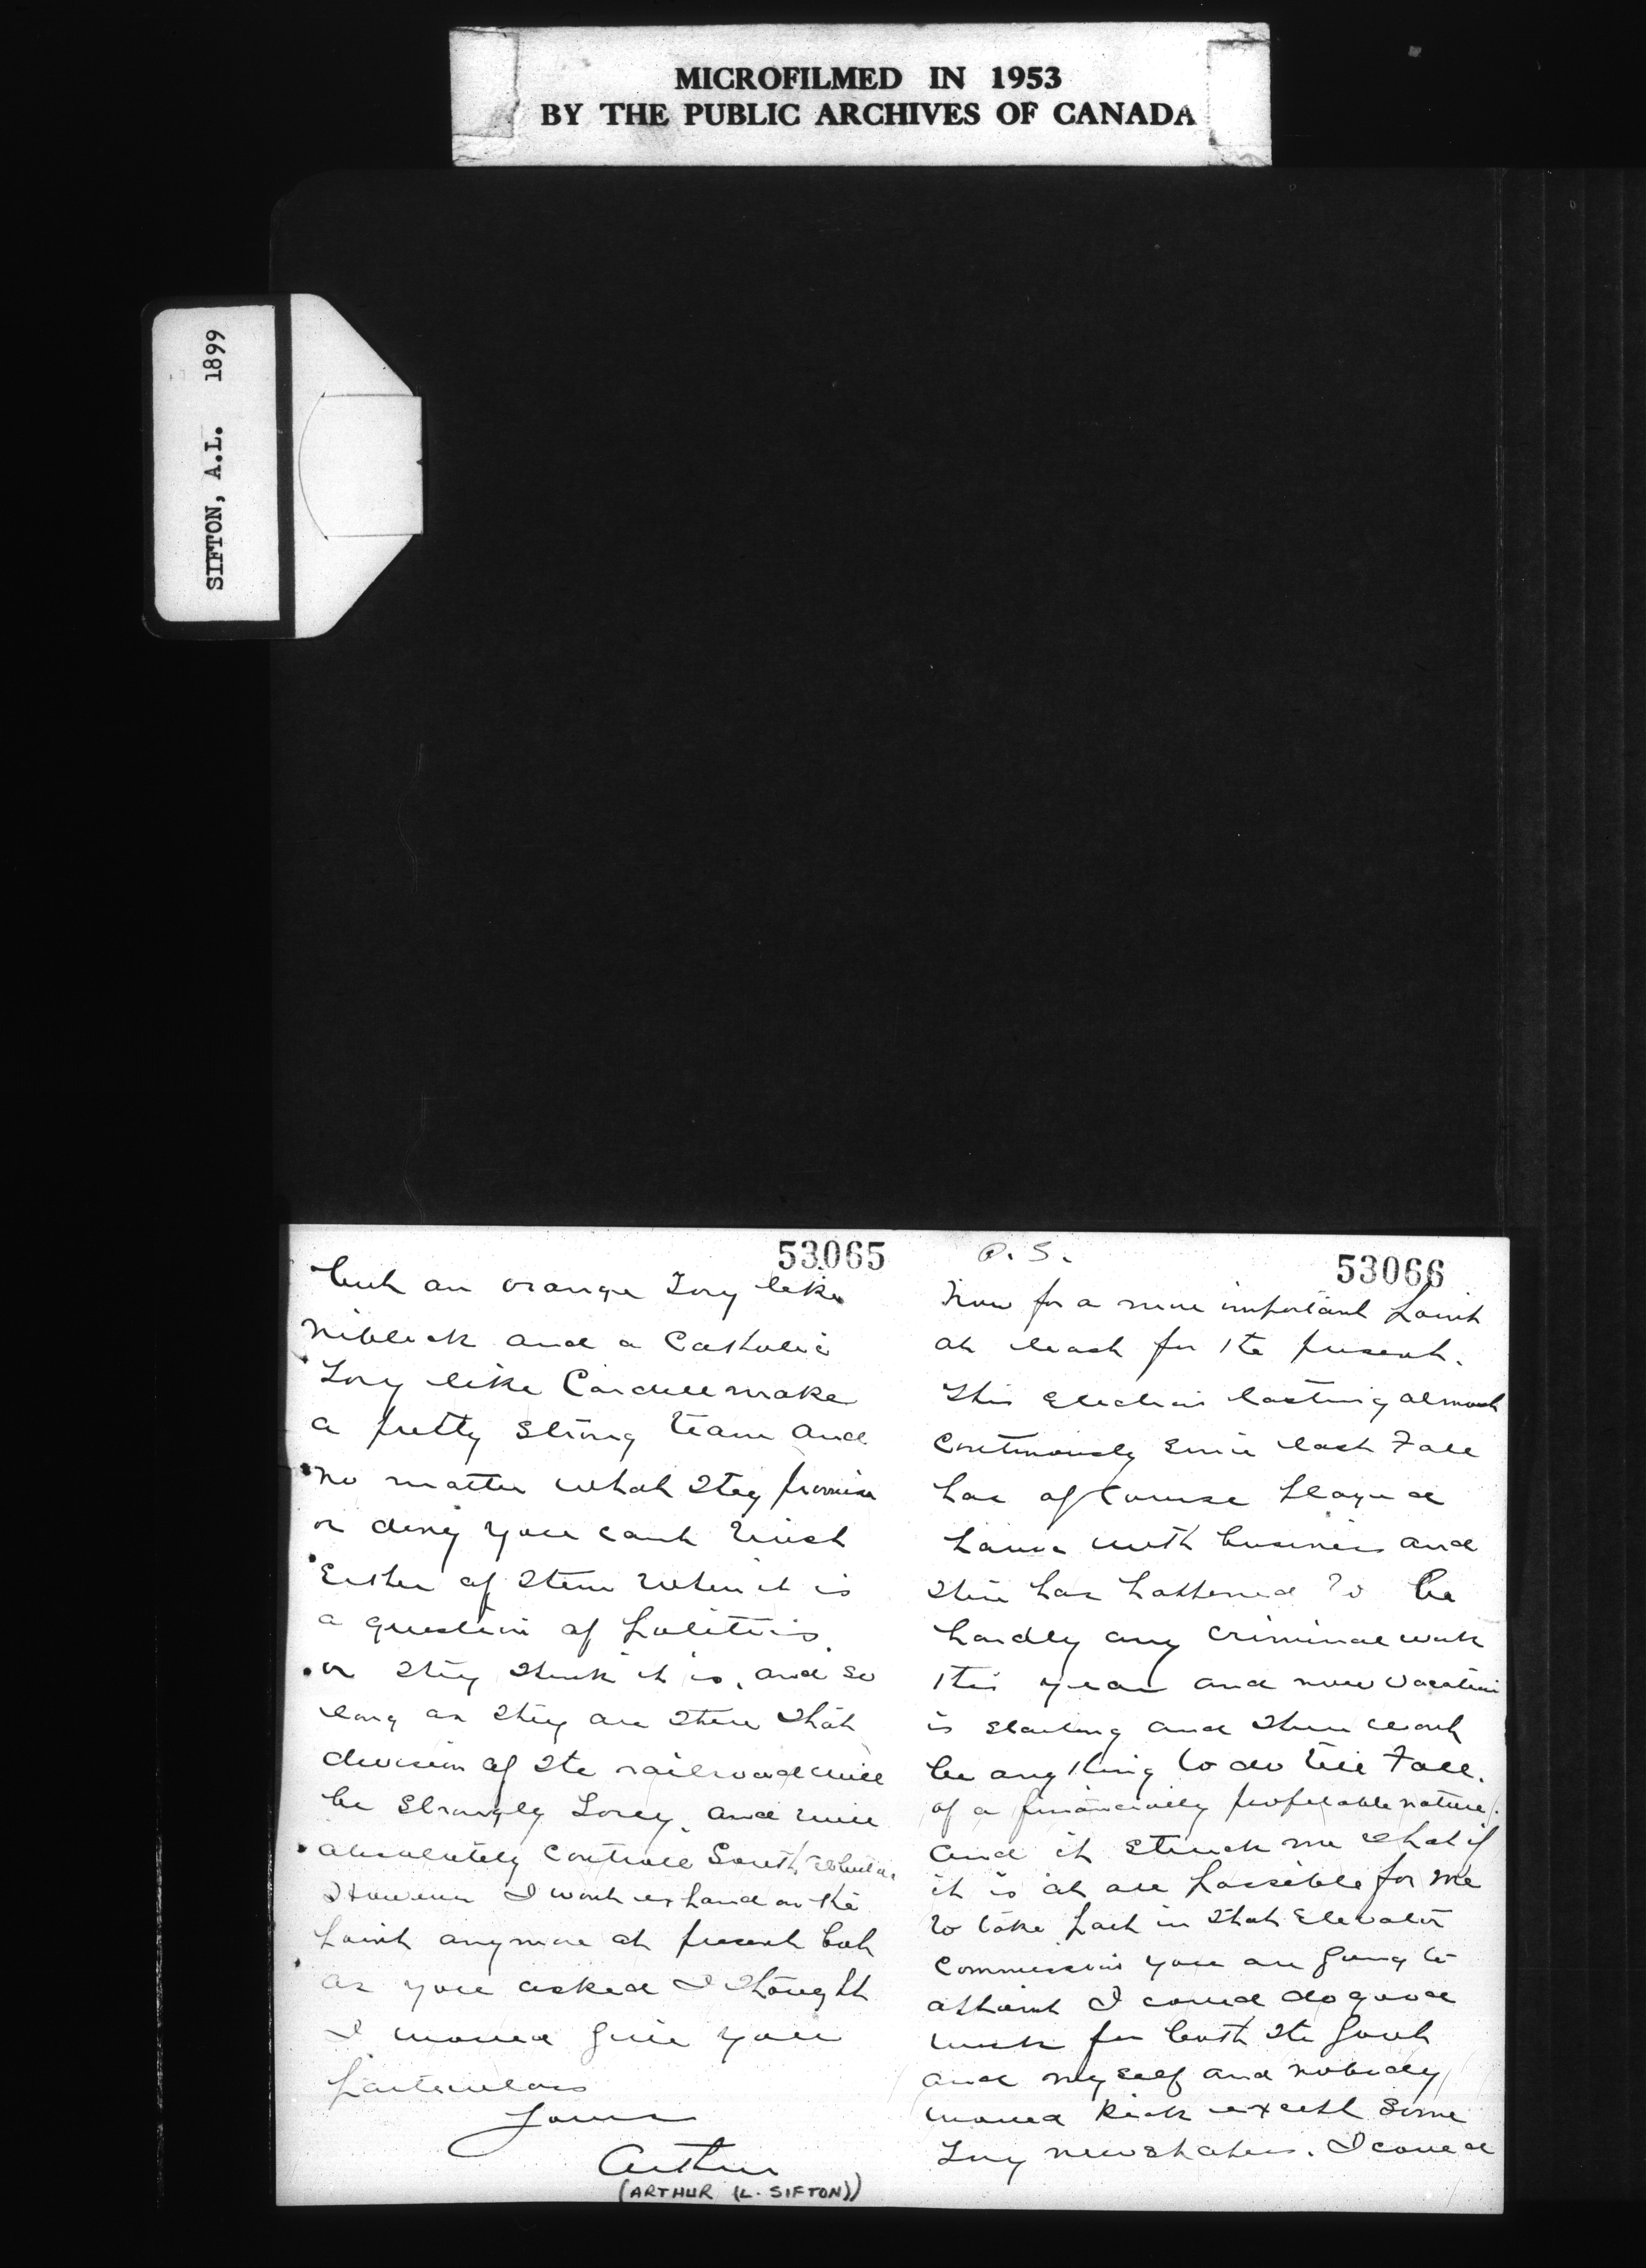 MICROFILMED IN 1953
BY THE PUBLIC ARCHIVES OF CANADA
SIFTON, A.L. 1899
53065
but an orange Tory like
Niblock and a Catholic
Tory like Cardell make
a pretty strong team and
no matter what they promise
or deny you cant trust
Either of them when it is
a question of politics
or they think it is, and so
long as they are there that
division of the railroad will
be Strongly Tory, and will
absolutely controll South
However I wont expand on the
point anymore at present but
as you asked I thought
I would give you
particulars
Yours
Arthur
(ARTHUR (L. SIFTON))
53066
P.S.
Now for a more important point
at least for the present.
This Election lasting almost
continuously since last Fall
has of course played
with business and
there has happened to be
hardly any criminal work
this year and now vacation
is starting and there wont
be anything to do till Fall.
of a financially profitable nature.
and it struck me that if
it is at all possible for me
to take part in that Elevator
Commission you are going to
appoint I could do good
work for both the Govt
and myself and nobody
would kick except some
Tory newspapers. I could